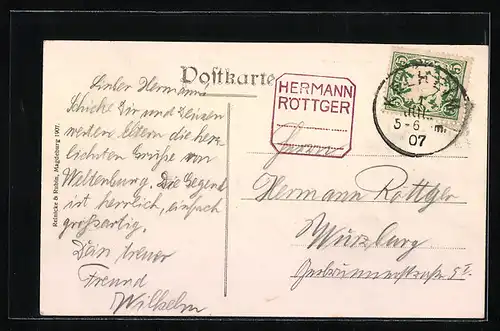 Postkarte
Lieber Hermann
Schicke Dir und Deinen
werten Eltern die herz
lichsten Grüße von
Weltenburg. Die Gegend
ist herrlich, einfach
großartig.
Dein treuer
Freund
Wilhelm
Reinicke & Rubin, Magdeburg 1907.
HERMANN
RÖTTGER
5
5-6
07
Herrn
Hermann Röttger
Würzburg